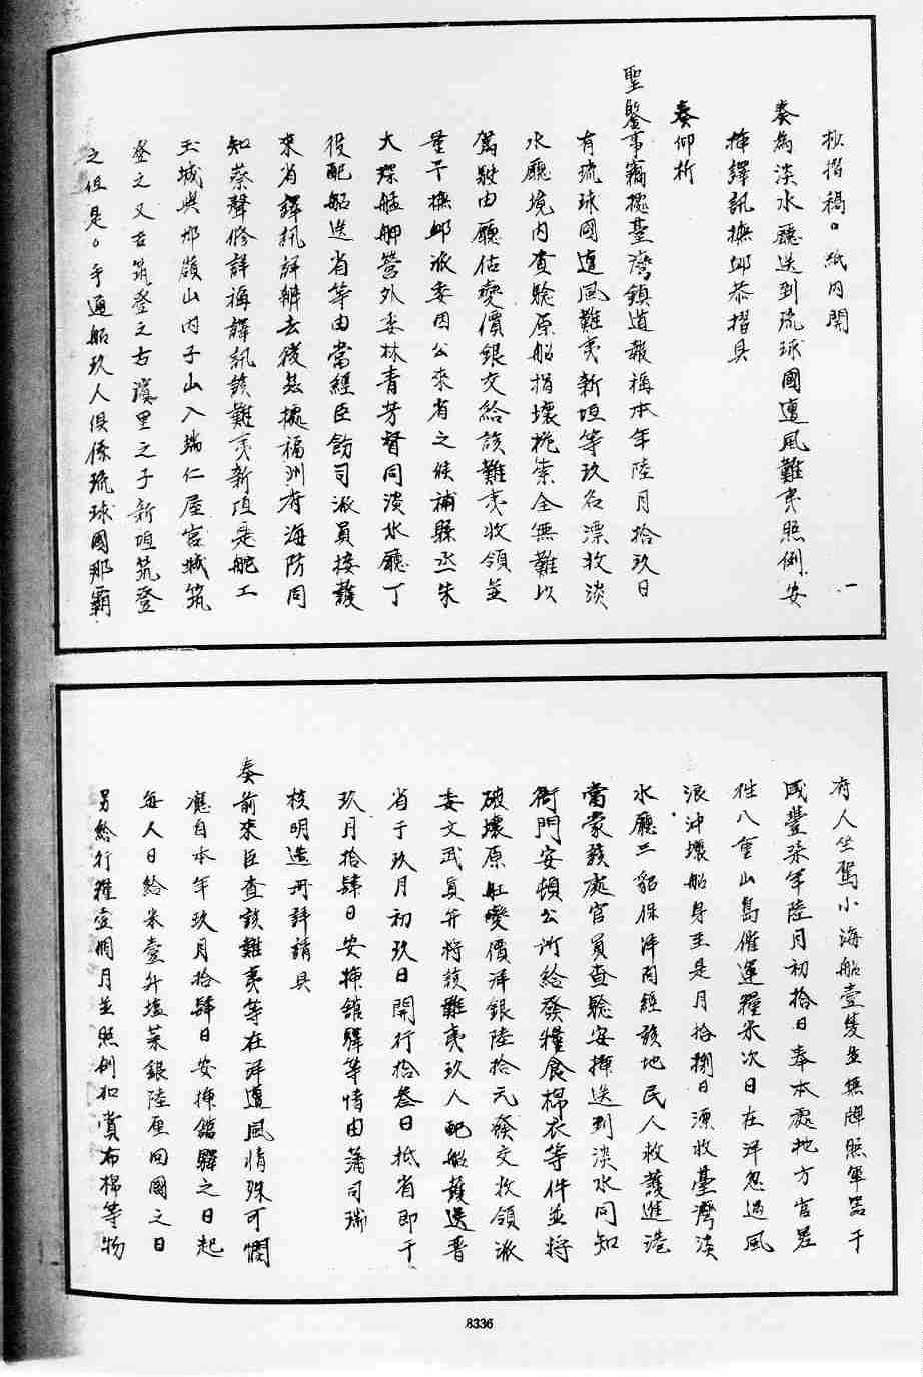 抄摺稿。紙內開
奏為淡水廳送到琉球國遭風難夷照例安
插譯訊撫卹恭摺具
奏仰祈
聖鑒事竊據臺灣鎮道報稱本年陸月拾玖日
有琉球國遭風難夷新垣等玖名漂收淡
水廳境內查驗原船損壞桅索全無難以
駕駛由廳估變價銀交給該難夷收領並
量予撫卹派委因公來省之候補縣丞朱
大 艋舺營外委林青芳督同淡水廳丁
役配船送省等由當經臣飭司派員接護
來省譯訊詳辦去後茲據福州府海防同
知蔡聲修詳稱譯訊該難夷新垣是舵工
玉城與那嶺山內子山入端仁屋宮城筑
登之又吉筑登之古濱里之子新垣筑登
之但是。手通船玖人俱係琉球國那霸
一
府人坐駕小海船壹隻並無牌照軍器于
咸豐柒年陸月初拾日奉本處地方官差
往八重山島催運糧米次日在洋忽遇風
浪沖壞船身至是月拾捌日漂收臺灣淡
水廳三貂保洋面經該地民人救護進港
當蒙該處官員查驗安插送到淡水同知
衙門安頓公所給發糧食棉衣等件並將
破壞原船變價洋銀陸拾元發交收領派
委文武員弁將該難夷玖人配船護送晉
省于玖月初玖日開行拾叁日抵省即于
玖月拾肆日安插館驛等情由藩司瑞
核明造冊詳請具
奏前來臣查該難夷等在洋遭風情殊可憫
應自本年玖月拾肆日安插館驛之日起
每人日給米壹升塩菜銀陸厘回國之日
另給行糧壹個月並照例加賞布棉等物
8336